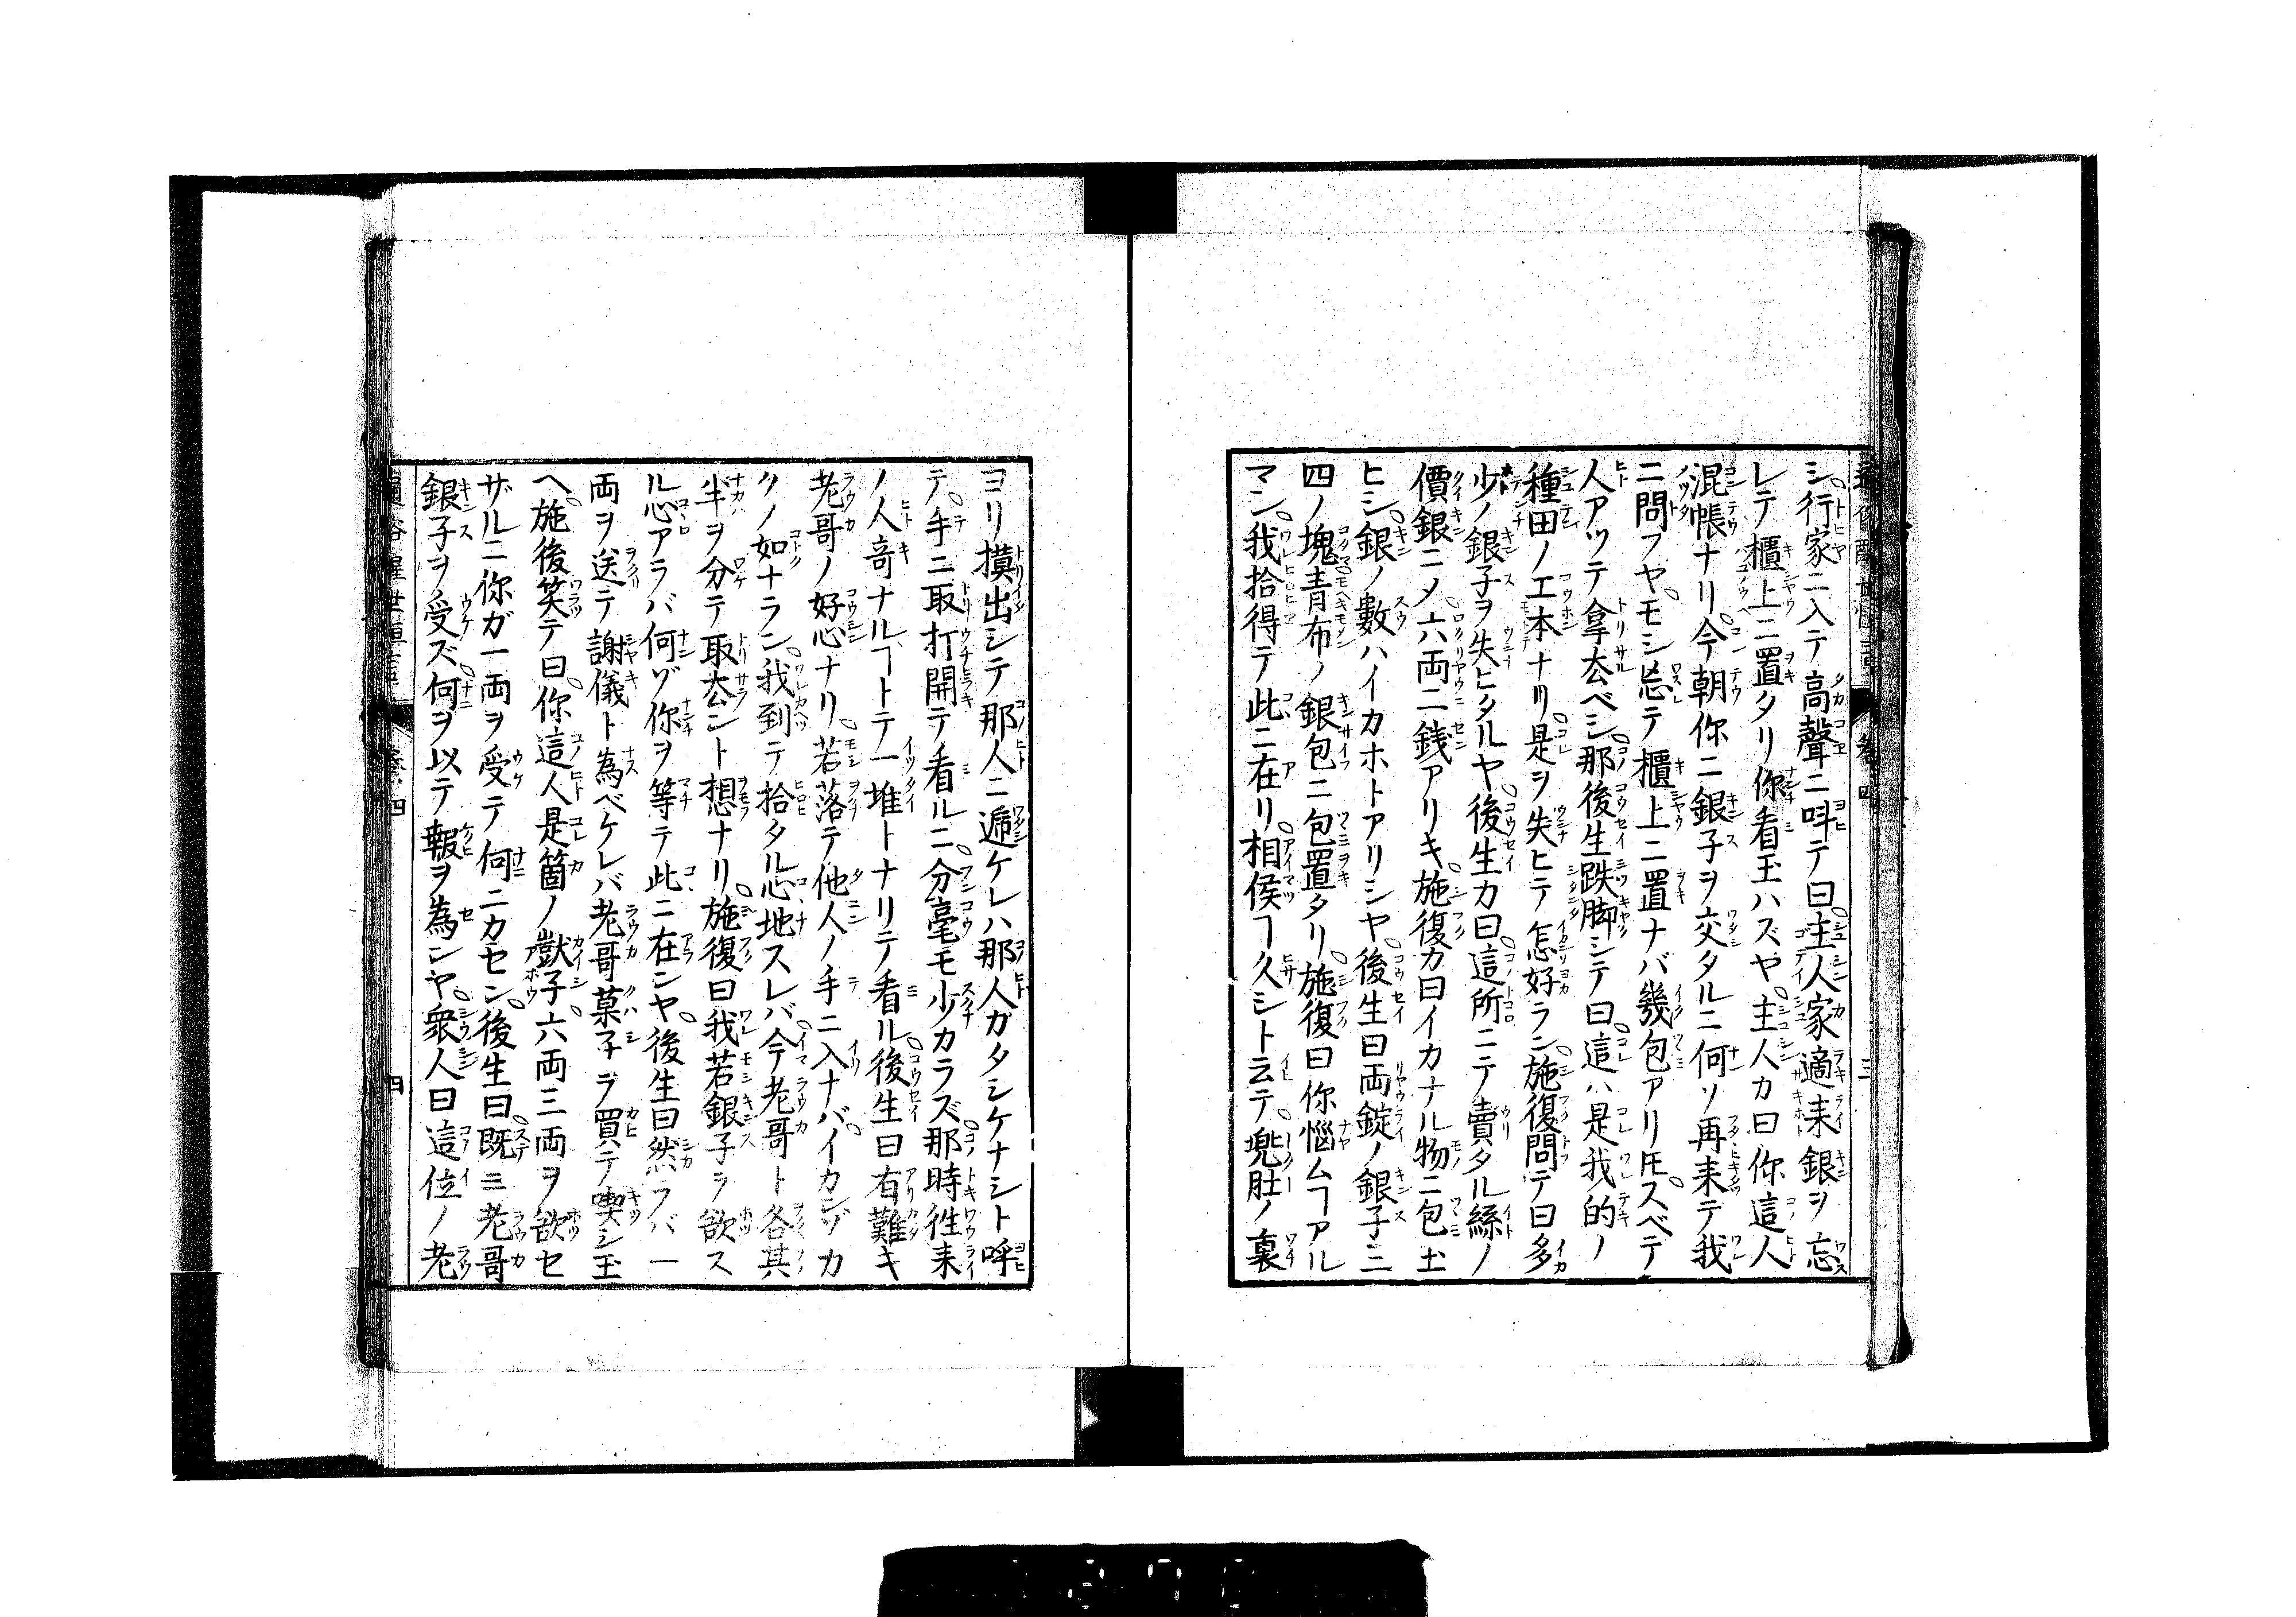 シ行家ニ入テ高聲ニ呌テ曰主人家適耒銀ヲ忘
レテ櫃上ニ置タリ你看玉ハズヤ主人カ曰你這人
混帳ナリ今朝你ニ銀子ヲ交タルニ何ソ再耒テ我
ニ問フヤモシ忘テ櫃上ニ置ナバ幾包アリ𪜈スベテ
人アツテ拿去ベシ那後生跌脚シテ曰這ハ是我的ノ
種田ノ工本ナリ是ヲ失ヒテ怎好ラン施復問テ曰多
少ノ銀子ヲ失ヒタルヤ後生カ曰這所ニテ賣タル絲ノ
價銀ニメ六両二銭アリキ施復カ曰イカナル物ニ包玉
ヒシ銀ノ數ハイカホトアリシヤ後生曰両錠ノ銀子三
四ノ塊青布ノ銀包ニ包置タリ施復曰你惱ムヿアル
マン我拾得テ此ニ在リ相侯ヿ久シト云テ兠肚ノ裏
ヨリ摸出シテ那人ニ遞ケレハ那人ガタシケナシト呼
テ手ニ取打開テ看ルニ分毫モ少カラズ那時徃耒
ノ人竒ナルヿトテ一堆トナリテ看ル後生曰有難キ
老哥ノ好心ナリ若落テ他人ノ手ニ入ナバイカンゾカ
クノ如ナラン我到テ拾タル心地スレバ今老哥ト各其
半ヲ分テ取去ント想ナリ施復曰我若銀子ヲ欲ス
ル心アラバ何ゾ你ヲ等テ此ニ在ンヤ後生曰然ラバ一
両ヲ送テ謝儀ト為ベケレバ老哥菓子ヲ買テ喫シ玉
ヘ施後笑テ曰你這人是箇ノ獃子六両三両ヲ欲セ
ザルニ你ガ一両ヲ受テ何ニカセン後生曰既ニ老哥
銀子ヲ受ズ何ヲ以テ報ヲ為ンヤ衆人曰這位ノ老
四
四